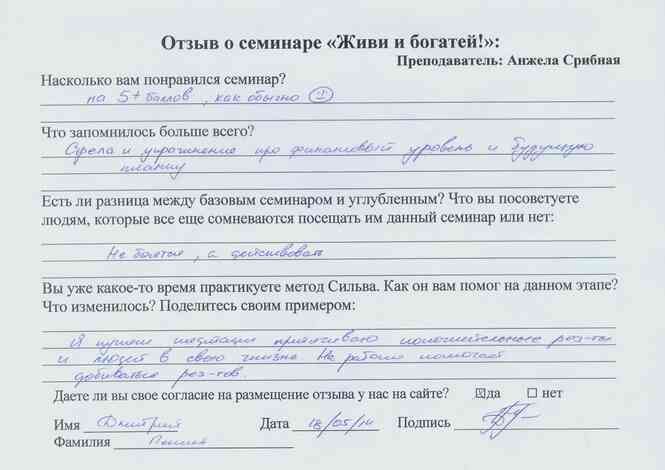 Отзыв о семинаре «Живи и богатей!»:
Преподаватель: Анжела Срибная
Насколько вам понравился семинар?
на 5+ баллов, как обычно
Что запомнилось больше всего?
и упражнение про финансовый уровень и будущую
планку
Есть ли разница между базовым семинаром и углубленным? Что вы посоветуете
людям, которые все еще сомневаются посещать им данный семинар или нет:
Не боятся, а действовать
Вы уже какое-то время практикуете метод Сильва. Как он вам помог на данном этапе?
Что изменилось? Поделитесь своим примером:
Я медитации притягиваю положительные рез-ты
и людей в свою жизнь. На работе помогает
добиваться рез-тов.
Даете ли вы свое согласие на размещение отзыва у нас на сайте? ☒да ☐ нет
Имя Дмитрий Дата 18/05/14 Подпись
Фамилия